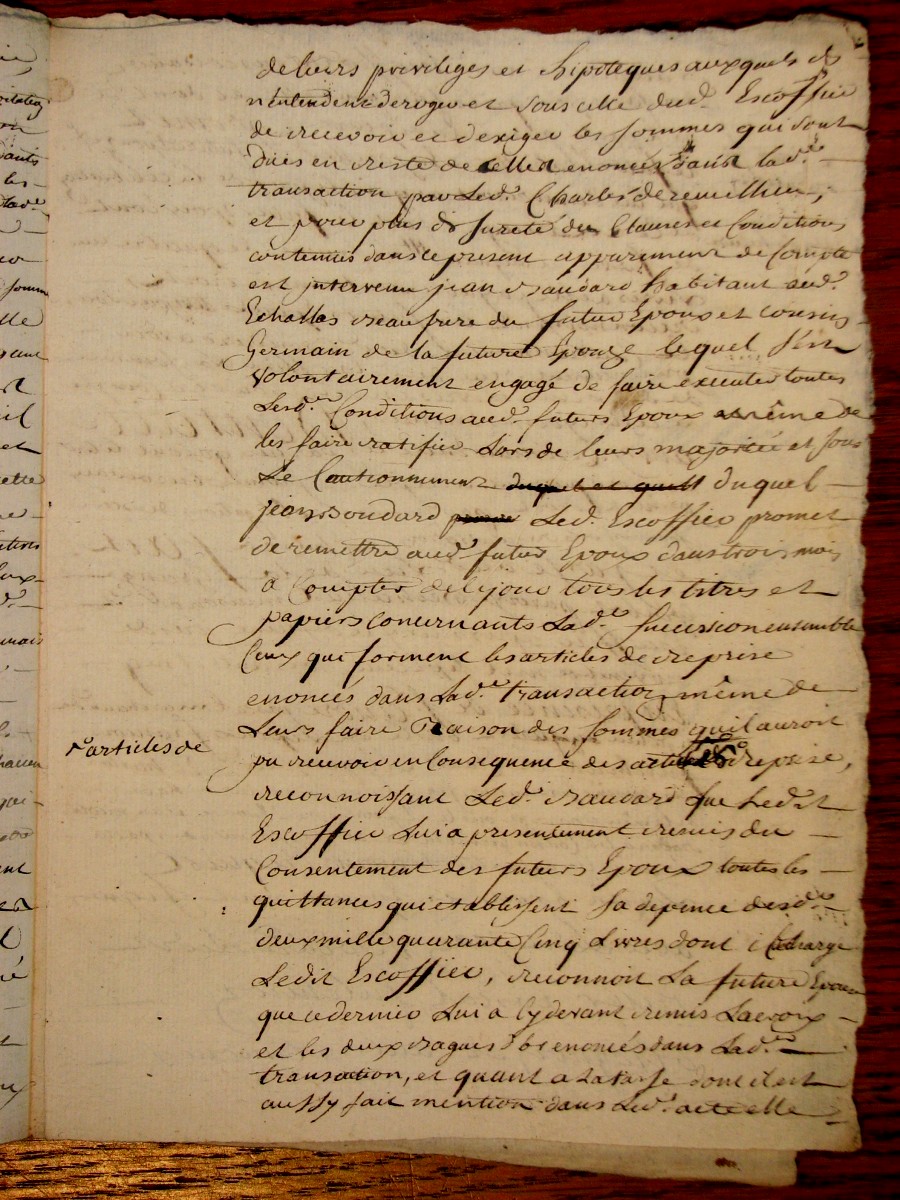 de leurs privileges et hipoteques auxquels ils
n'entendent deroger et sous celle dud. Escoffier
de recevoir et d'exiger les sommes qui sont
dues en reste de celles enoncées dans lad.e
transaction par led. Charles de remillieu,
et pour plus de sureté des Clauses et Conditions
contenues dans le present appurement de Compte
est intervenu jean baudard habitant aud.
Echallas beau frere du futur Epoux et cousin
Germain de la future Epouze lequel s'est
volontairement engagé de faire executer toutes
lesd.es Conditions aud. futurs Epoux et même de
les faire ratifier Lors de leurs majorité et sous
Le Cautionnement duquel
jean boudard Led. Escoffier promet
de remettre aud. futur Epoux dans trois mois
a Compter de ce jour tous les titres et
papiers concernants Lad.e succession ensemble
Ceux qui forment les articles de reprise
enoncés dans Lad.e transaction, même de
Leurs faire Raison des sommes qu'il auroit
r.e articles de
pu recevoir en Consequence des reprise,
reconnoissant Led. baudard que Ledit
Escoffier Lui a presentement remis du
Consentement des futurs Epoux toutes les
quittances qui etablissent sa depence desd.es
deux mille quarante Cinq Livres dont
Ledit Escoffier, reconnoit La future Epouze
que ce dernier Lui a cy devant remis La croix
et les deux bagues d'or enoncés dans Lad.e
transaction, et quant a La tasse dont il est
aussy fait mention dans Led. acte elle